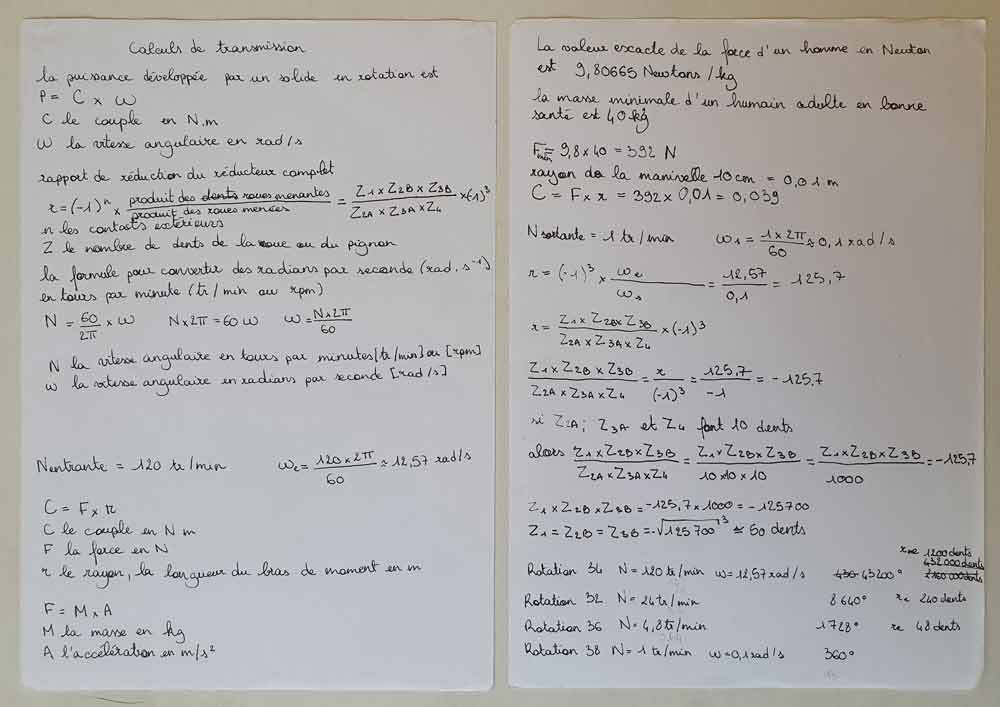 Calculs de transmission
la puissance développée par un solide en rotation est
P = C x ω
C le couple en N.m
ω la vitesse angulaire en rad/s
rapport de réduction du réducteur complet
r = (-1)ⁿ x produit des dents roues menantes / produit des roues menées = Z1 x Z2B x Z3B / Z2A x Z3A x Z4 x (-1)³
n les contacts extérieurs
Z le nombre de dents de la roue ou du pignon
la formule pour convertir des radians par seconde (rad.s⁻¹)
en tours par minute (tr/min ou rpm)
N = 60/2π x ω N x 2π = 60 ω ω = N x 2π / 60
N la vitesse angulaire en tours par minutes [tr/min] ou [rpm]
ω la vitesse angulaire en radians par seconde [rad/s]
Nentrante = 120 tr/min ωe = 120 x 2π / 60 ≈ 12,57 rad/s
C = F x r
C le couple en N m
F la force en N
r le rayon, la longueur du bras de moment en m
F = M x A
M la masse en kg
A l'accélération en m/s²
La valeur exacte de la force d'un homme en Newton
est 9,80665 Newtons/kg
la masse minimale d'un humain adulte en bonne
santé est 40 kg
Fmin = 9,8 x 40 = 392 N
rayon de la manivelle 10 cm = 0,01 m
C = F x r = 392 x 0,01 = 0,039
Nsortante = 1 tr/min ωs = 1 x 2π / 60 ≈ 0,1 rad/s
r = (-1)³ x ωe / ωs = 12,57 / 0,1 = 125,7
r = Z1 x Z2B x Z3B / Z2A x Z3A x Z4 x (-1)³
Z1 x Z2B x Z3B / Z2A x Z3A x Z4 = r / (-1)³ = 125,7 / -1 = -125,7
si Z2A; Z3A et Z4 font 10 dents
alors Z1 x Z2B x Z3B / Z2A x Z3A x Z4 = Z1 x Z2B x Z3B / 10 x 10 x 10 = Z1 x Z2B x Z3B / 1000 = -125,7
Z1 x Z2B x Z3B = -125,7 x 1000 = -125700
Z1 = Z2B = Z3B = -√125700^1/3 ≈ 50 dents
1200 dents
432000 dents
Rotation 34 N = 120 tr/min ω = 12,57 rad/s 43200°
Rotation 32 N = 24 tr/min 8640° 240 dents
Rotation 36 N = 4,8 tr/min 1728° 48 dents
Rotation 38 N = 1 tr/min ω = 0,1 rad/s 360°